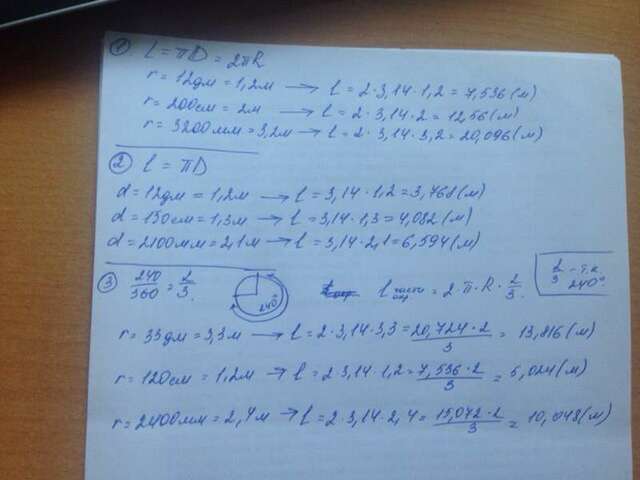 ① L = πD = 2πR
r = 12дм = 1,2м → l = 2·3,14·1,2 = 7,536 (м)
r = 200см = 2м → l = 2·3,14·2 = 12,56 (м)
r = 3200мм = 3,2м → l = 2·3,14·3,2 = 20,096 (м)
② l = πD
d = 12дм = 1,2м → l = 3,14·1,2 = 3,768 (м)
d = 130см = 1,3м → l = 3,14·1,3 = 4,082 (м)
d = 2100мм = 2,1м → l = 3,14·2,1 = 6,594 (м)
③ 240/360 = 2/3. 240° l части окр = 2·π·R·2/3. 2/3 - т.к 240°
r = 33дм = 3,3м → l = 2·3,14·3,3 = 20,724·2/3 = 13,816 (м)
r = 120см = 1,2м → l = 2·3,14·1,2 = 7,536·2/3 = 5,024 (м)
r = 2400мм = 2,4м → l = 2·3,14·2,4 = 15,072·2/3 = 10,048 (м)